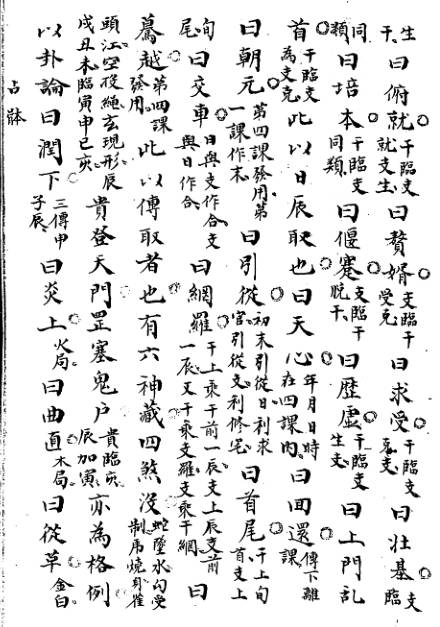 生干曰俯就干臨支就支生曰贅婿支臨干受克曰求受干臨支克支曰壯基支臨
同類曰培本干臨支同類曰偃蹇支臨干脫干曰歷虛干臨支生支曰上門亂
首干臨支為支克此以日辰取也曰天心年月日時在四課內曰回還傳不離課
曰朝元第四課發用第一課作末曰引從初末引從日利求官引從支利修宅曰首尾干上旬首支上
旬尾曰交車日與支作合支與日作合曰網羅干上乘干前一辰支上辰支前一辰又干乘支羅支乘干網曰
驀越第四課發用此以傳取者也有六神藏四煞沒蛇墮水勾受制虎燒身雀
頭江空投繩玄現形辰戌丑未臨寅申巳亥貴登天門罡塞鬼户貴臨亥辰加寅亦為格例
以卦論曰潤下三傳申子辰曰炎上火局曰曲直木局曰從草金白
占